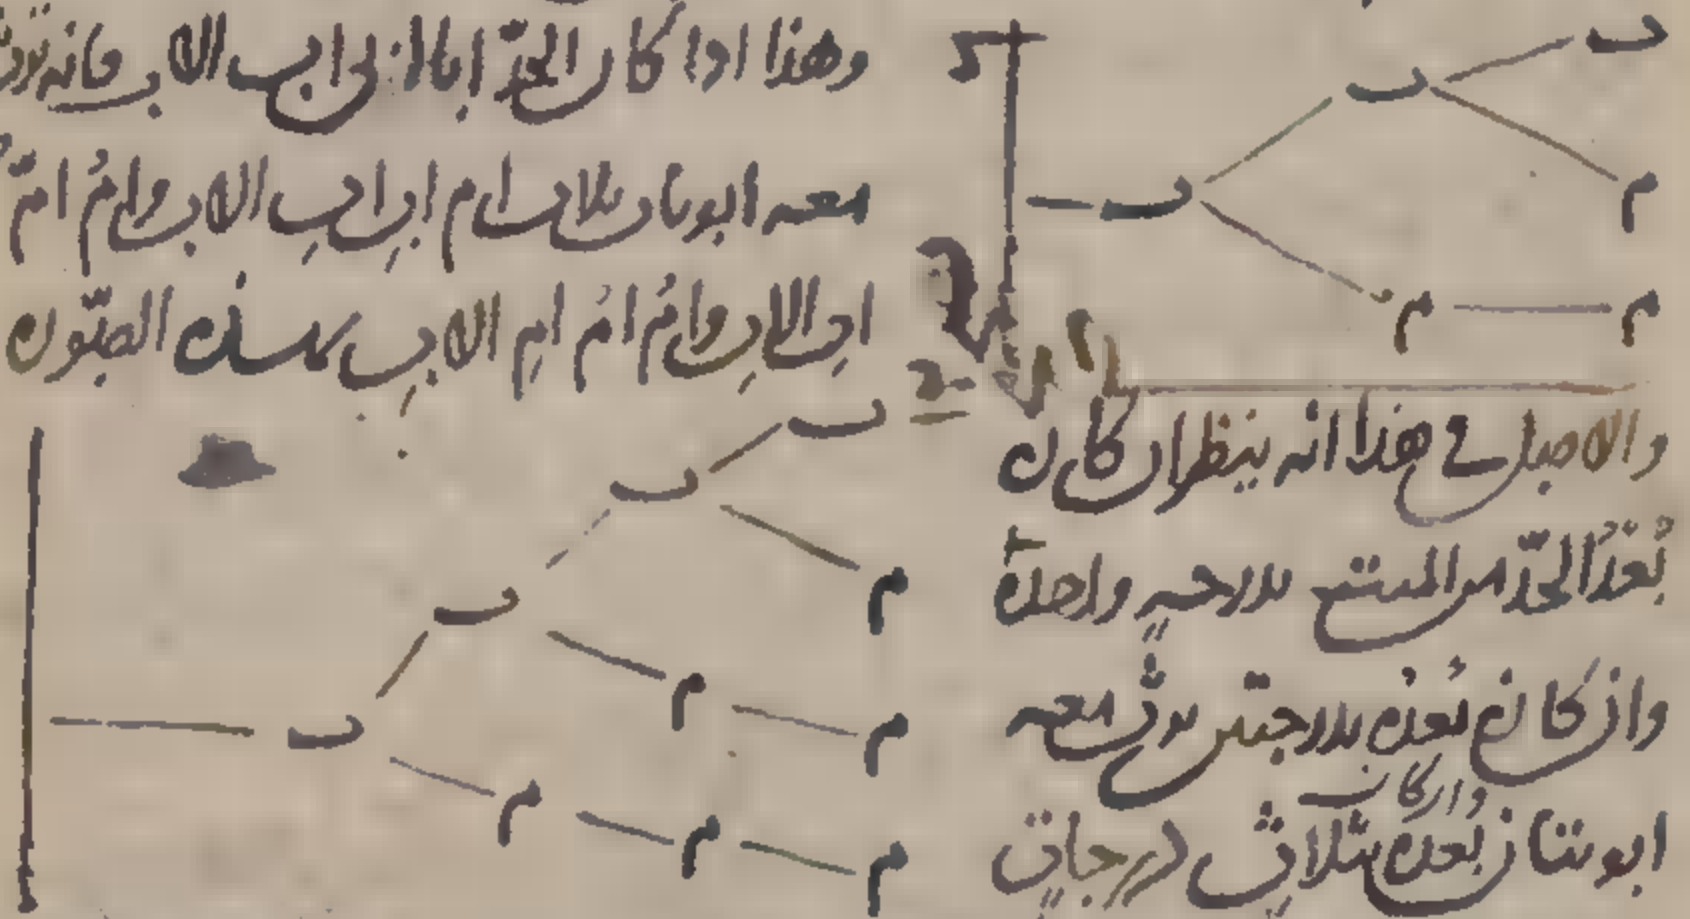 ب
ب
م
ب
م م
والاصل في هذا انه ينظر ان كان
بُعْدُ الجدّ من الميت بدرجةٍ واحدة
وان كان بُعدُه بدرجتين يرث معه
وان كان
ابويتان بُعده بثلاثِ درجاتٍ
وهذا اذا كان الجدّ ابا ابى اب الاب فانه ترث
معه ابويات ثلاث ام ابِ ابِ الاب وامُ امّ
ابِ الاب وامُ امُ امِ الابِ بهذه الصّورة
ب
ب
م
ب
م م
ب
م م م